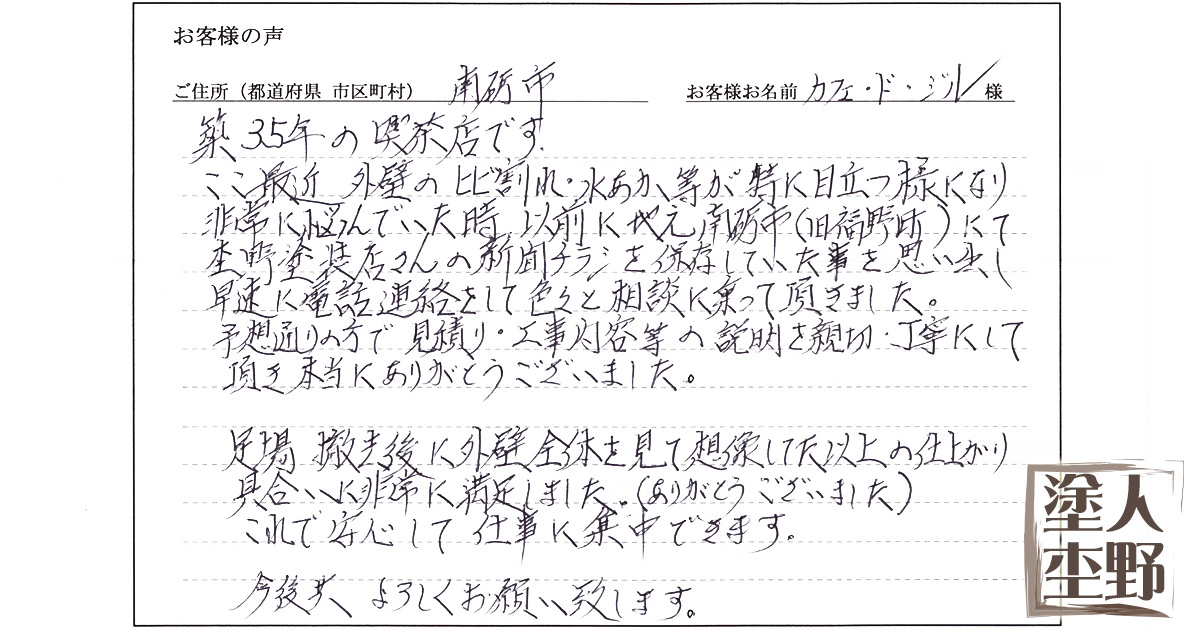 お客様の声
ご住所（都道府県 市区町村） 南砺市 お客様お名前 カフェ・ド・ジル 様
築35年の喫茶店です。
ここ最近 外壁のヒビ割れ・水あか、等が特に目立つ様になり
非常に悩んでいた時、以前に地元南砺市(旧福野町)にて
杢野塗装店さんの新聞チラシを保存していた事を思い出し
早速に電話連絡をして色々と相談に乗って頂きました。
予想通りの方で見積り・工事内容等の説明を親切・丁寧にして
頂き本当にありがとうございました。
足場 撤去後に外壁全体を見て想像してた以上の仕上がり
具合いに非常に満足しました。(ありがとうございました)
これで安心して仕事に集中できます。
今後共 よろしくお願い致します。
塗人
杢野